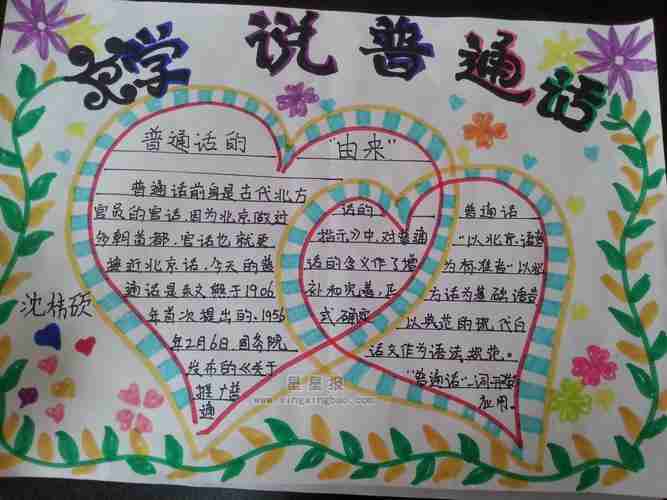 学说普通话
普通话的"由来"
普通话前身是古代北方
官员的官话因为北京做过
多朝首都,官话也就更
接近北京话,今天的普
通话是朱文熊于1906
年首次提出的.1956
年2月6日.国务院
发布的《关于
推广普
通
话的
指示》中,对普通
话的含义作了增
补和完善,正
式确定
普通话
"以北京语音
为标准音"以北
方话为基础语言
以典范的现代白
话文作为语法规范。
"普通话"一词开始
应用.
沈梼硕
星星报
www.xingxingbao.com